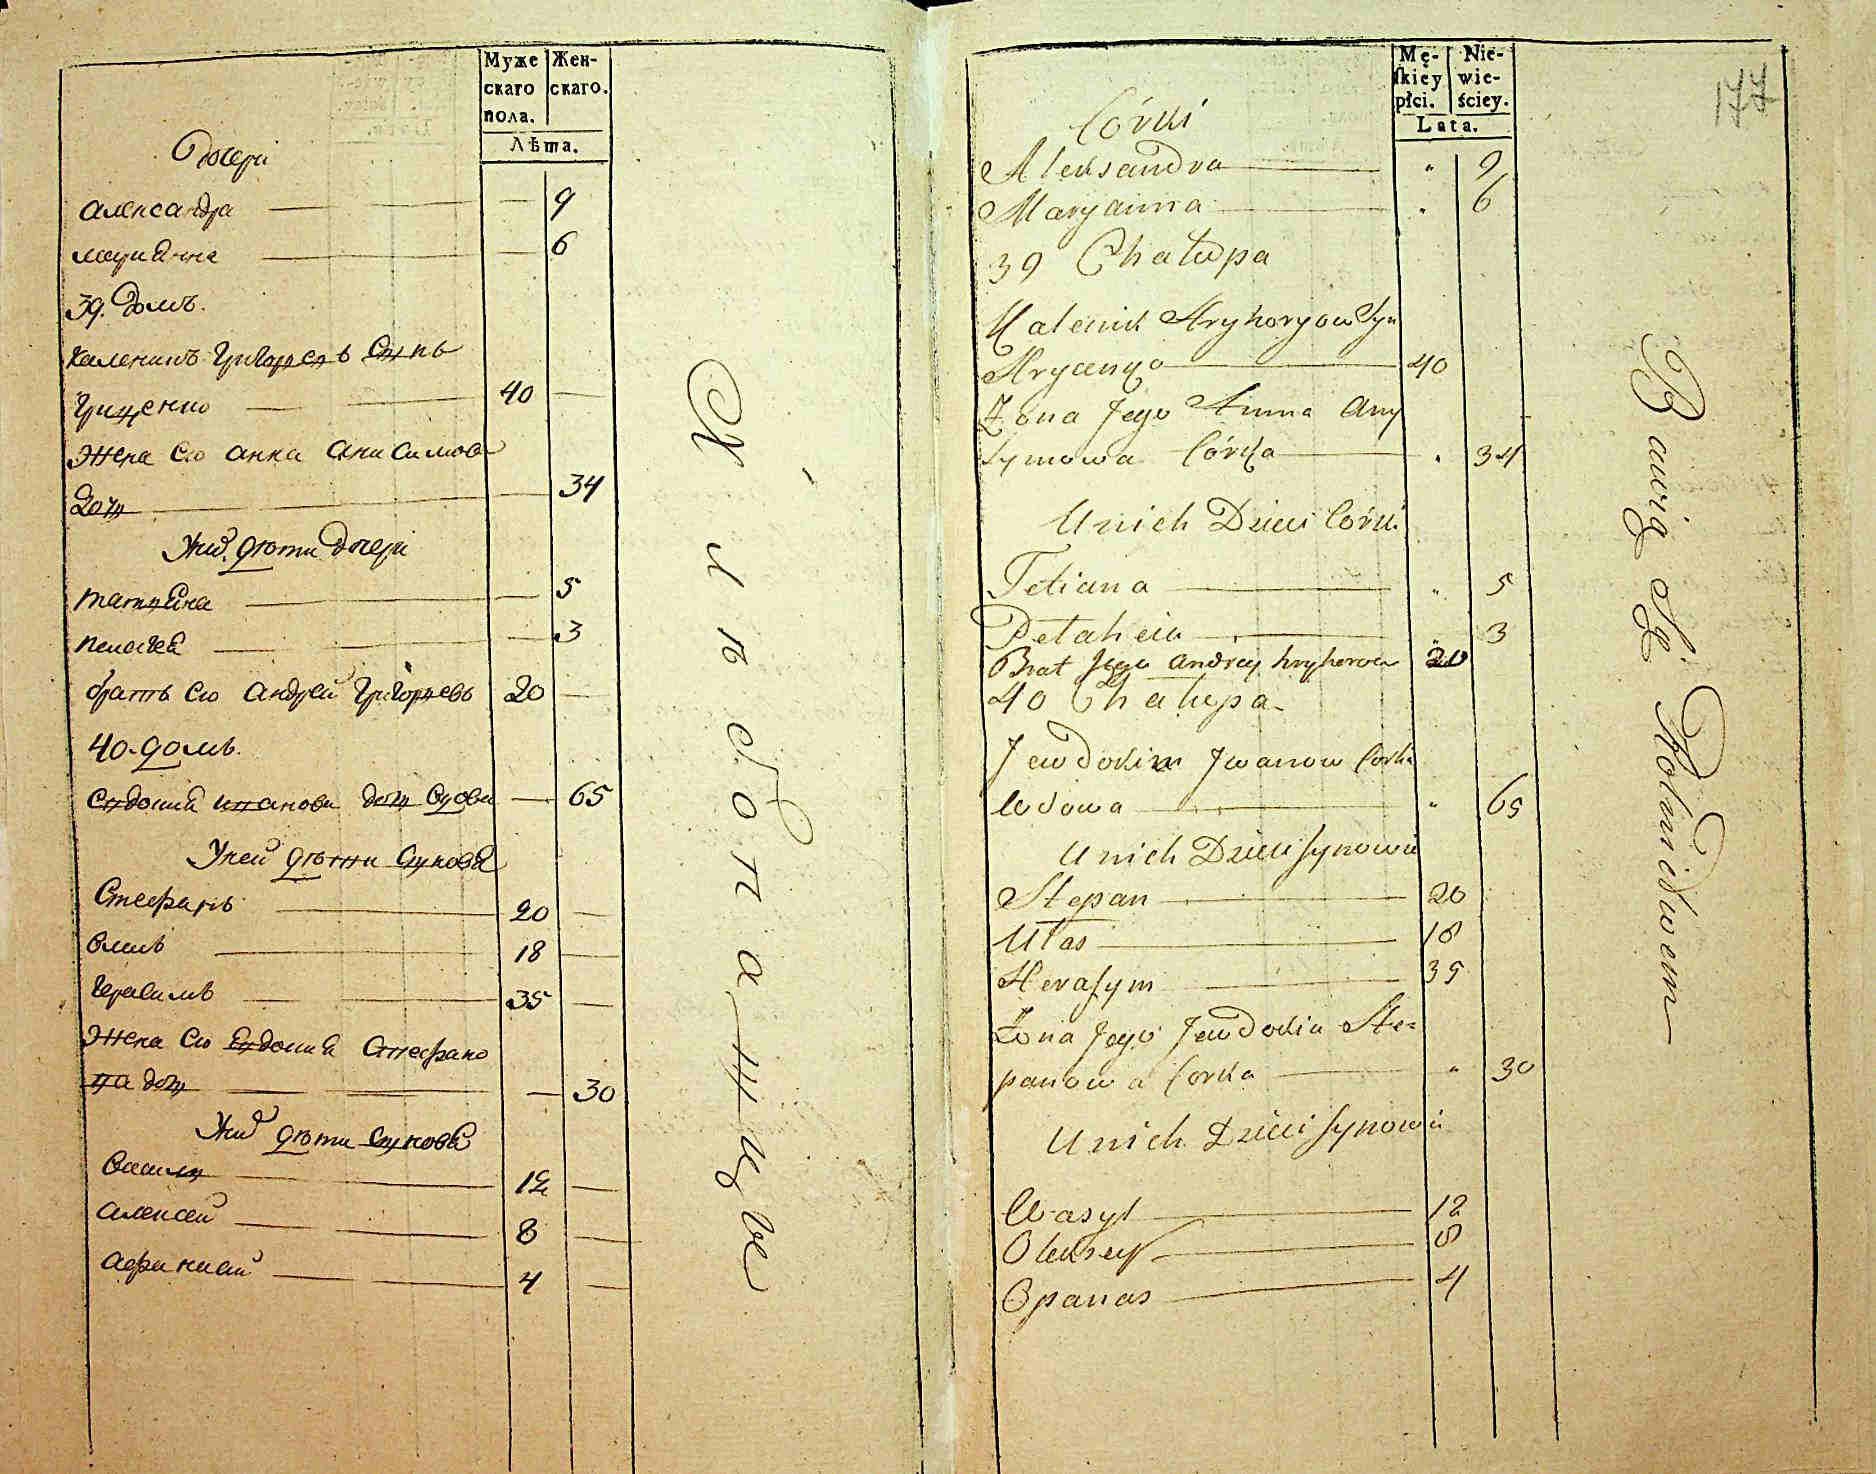 Муже Жен-
скаго скаго.
пола.
Лѣта.
Дочери
Александра — — 9
Марианна — — 6
39. Домъ.
Каленикъ Григорьевъ Сынъ
Гриценко — 40 —
Жена его Анна Анисимова
дочь — — 34
У них дѣти Дочери
Татияна — — 5
Пелагея — — 3
братъ его Андрей Григорьевъ 20 —
40. домъ.
Евдокия Иванова дочь вдова — 65
У ней дѣти Сыновья
Стефанъ — 20 —
Власъ — 18 —
Герасимъ — 35 —
Жена его Евдокия Стефано
ва дочь — — 30
У них дѣти Сыновья
Василий — 12 —
Алексей — 8 —
Афанасий — 4 —
Хлѣбопашцы
177
Mę- Nie-
ſkiey wie-
płci. ściey.
Lata.
Córki
Aleksandra — " 9
Maryanna — " 6
39 Chałupa
Kalenik Hryhoryow Syn
Hrycenko — 40
Żona Jego Anna Any
symowa Córka — " 34
U nich Dzieci Córki
Tetiana — " 5
Pelaheia — " 3
Brat Jego Andrey Hryhorow 20
40 Chałupa
Jewdokia Jwanow Corka
wdowa — " 65
U nich Dzieci Synowie
Stepan — 20
Ułas — 18
Herasym — 35
Żona Jego Jewdokia Ste=
panowa Corka — " 30
U nich Dzieci Synowie
Wasyl — 12
Olexsey — 8
Opanas — 4
Bawią Się Rolnictwem